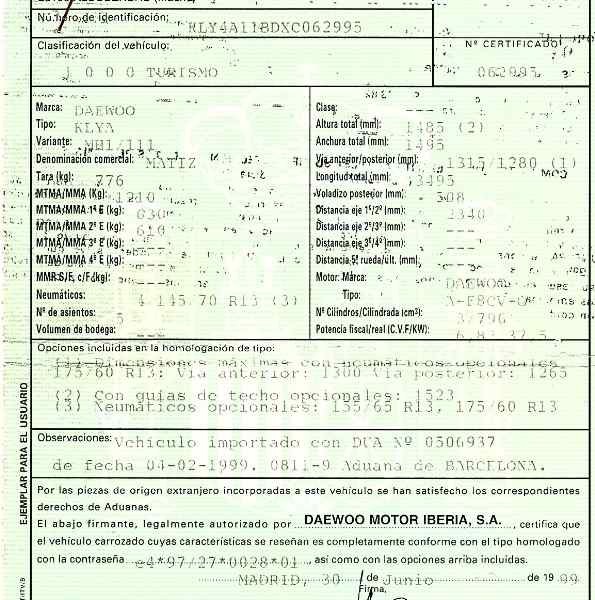 Número de identificación: RLY4A11BDXC062995
Clasificación del vehículo:
1 0 0 0 TURISMO
Nº CERTIFICADO
062995
Marca: DAEWOO
Tipo: KLYA
Variante: MB1/111
Denominación comercial: MATIZ
Tara (kg): 776
MTMA/MMA (Kg) 1210
MTMA/MMA 1º E (kg): 630
MTMA/MMA 2º E (kg): 610
MTMA/MMA 3º E (kg): ---
MTMA/MMA 4º E (kg): ---
MMR S/F, c/F (kg): ---
Neumáticos: 4 145.70 R13 (3)
Nº de asientos: 5
Volumen de bodega: ---
Clase: ---
Altura total (mm): 1485 (2)
Anchura total (mm): 1495
Vía anterior/posterior (mm): 1315/1280 (1)
Longitud total (mm): 3495
Voladizo posterior (mm): 508
Distancia eje 1º/2º (mm): 2340
Distancia eje 2º/3º (mm): ---
Distancia eje 3º/4º (mm): ---
Distancia 5ª rueda/últ. (mm): ---
Motor: Marca: DAEWOO
Tipo: A-F8CV-
Nº Cilindros/Cilindrada (cm³): 3/796
Potencia fiscal/real (C.V.F/KW): 37,5
Opciones incluidas en la homologación de tipo:
(1) Dimensiones máximas con neumáticos opcionales
175/60 R13: Vía anterior: 1300 Vía posterior: 1265
(2) Con guías de techo opcionales: 1523
(3) Neumáticos opcionales: 155/65 R13, 175/60 R13
Observaciones: Vehiculo importado con DUA Nº 0506937
de fecha 04-02-1999. 0811-9 Aduana de BARCELONA.
EJEMPLAR PARA EL USUARIO
Por las piezas de origen extranjero incorporadas a este vehículo se han satisfecho los correspondientes
derechos de Aduanas.
El abajo firmante, legalmente autorizado por DAEWOO MOTOR IBERIA, S.A. , certifica que
el vehículo carrozado cuyas características se reseñan es completamente conforme con el tipo homologado
con la contraseña e4*97/27*0028*01 , así como con las opciones arriba incluidas.
MADRID, 30 de Junio de 1999
Firma,